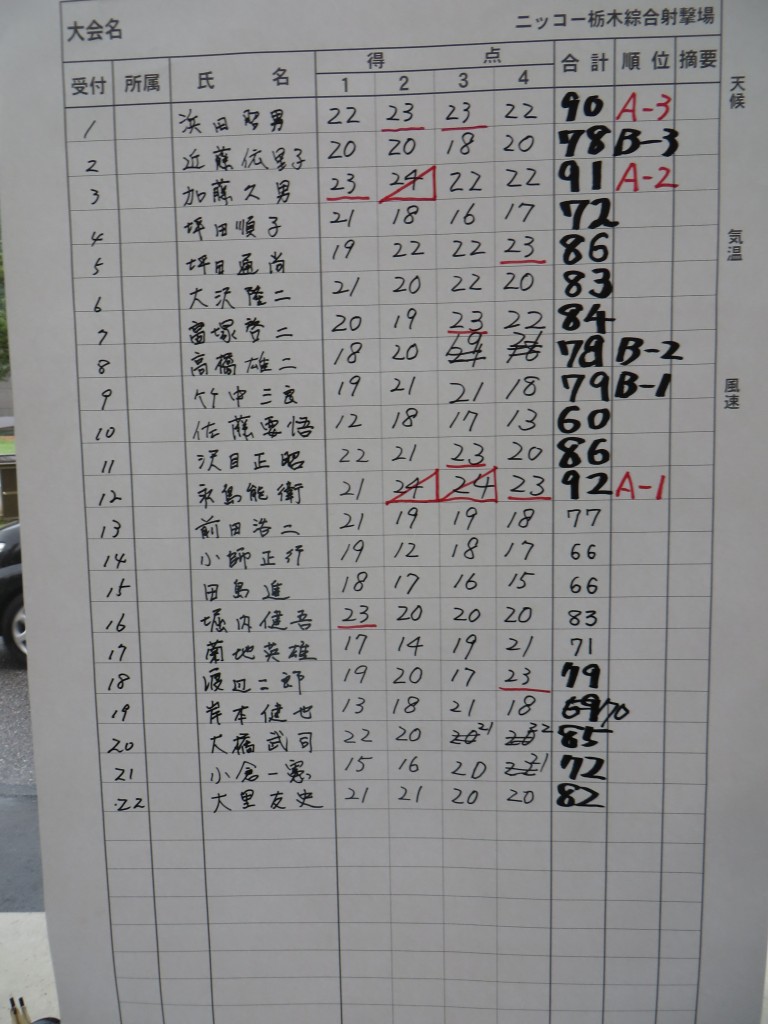 大会名 ニッコー栃木綜合射撃場
受付 所属 氏名 得点 合計 順位 摘要
1 2 3 4
天候
気温
風速
1 浜田 男 22 23 23 22 90 A-3
2 近藤依里子 20 20 18 20 78 B-3
3 加藤久男 23 24 22 22 91 A-2
4 坪田順子 21 18 16 17 72
5 坪田通尚 19 22 22 23 86
6 大沢隆二 21 20 22 20 83
7 高塚啓二 20 19 23 22 84
8 高橋雄二 18 20 19 21 78 B-2
9 竹中三良 19 21 21 18 79 B-1
10 佐藤要悟 12 18 17 13 60
11 沢目正昭 22 21 23 20 86
12 永島能衛 21 24 24 23 92 A-1
13 前田浩二 21 19 19 18 77
14 小師正行 19 12 18 17 66
15 田島進 18 17 16 15 66
16 堀内健吾 23 20 20 20 83
17 菊地英雄 17 14 19 21 71
18 渡辺二郎 19 20 17 23 79
19 岸本健也 13 18 21 18 69/70
20 大橋武司 22 20 21 22 85
21 小倉一憲 15 16 20 21 72
22 大里友史 21 21 20 20 82